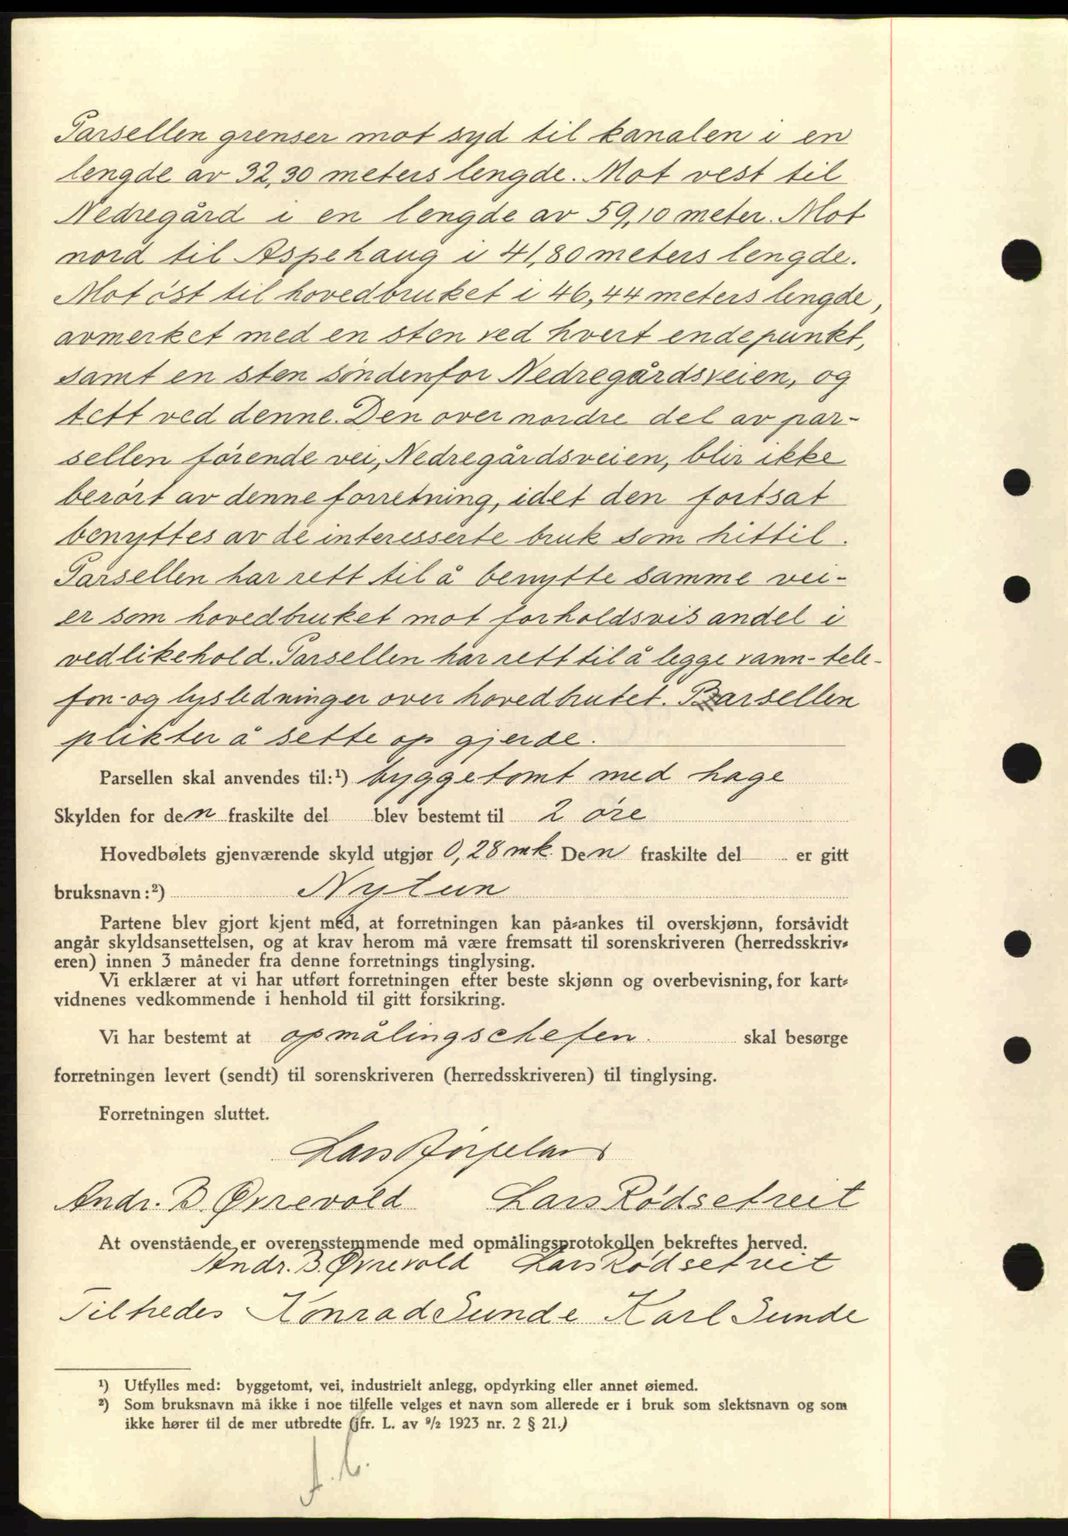 Parsellen grenser mot syd til kanalen i en
lengde av 32,30 meters lengde. Mot vest til
Nedregård i en lengde av 59,10 meter. Mot
nord til Aspehaug i 41,80 meters lengde.
Mot øst til hovedbruket i 46,44 meters lengde,
avmerket med en sten ved hvert endepunkt,
samt en sten søndenfor Nedregårdsveien, og
tett ved denne. Den over nordre del av par-
sellen førende vei, Nedregårdsveien, blir ikke
berørt av denne forretning, idet den fortsat
benyttes av de interesserte bruk som hittil.
Parsellen har rett til å benytte samme vei-
er som hovedbruket mot forholdsvis andel i
vedlikehold. Parsellen har rett til å legge vann- tele-
fon- og lysledninger over hovedbruket. Parsellen
plikter å sette op gjerde.
Parsellen skal anvendes til:¹) byggetomt med hage
Skylden for den fraskilte del blev bestemt til 2 øre
Hovedbølets gjenværende skyld utgjør 0,28 mk. Den fraskilte del er gitt
bruksnavn:²) Nytun
Partene blev gjort kjent med, at forretningen kan på-ankes til overskjønn, forsåvidt
angår skyldsansettelsen, og at krav herom må være fremsatt til sorenskriveren (herredsskriv-
eren) innen 3 måneder fra denne forretnings tinglysing.
Vi erklærer at vi har utført forretningen efter beste skjønn og overbevisning, for kart-
vidnenes vedkommende i henhold til gitt forsikring.
Vi har bestemt at opmålingschefen. skal besørge
forretningen levert (sendt) til sorenskriveren (herredsskriveren) til tinglysing.
Forretningen sluttet.
Lars Børpeland
Andr. B. Øvrevold Lars Rødsetreit
At ovenstående er overensstemmende med opmålingsprotokollen bekreftes herved.
Andr. B. Øvrevold Lars Rødsetreit
Tiltredes Konrad Sunde Karl Sunde
¹) Utfylles med: byggetomt, vei, industrielt anlegg, opdyrking eller annet øiemed.
²) Som bruksnavn må ikke i noe tilfelle velges et navn som allerede er i bruk som slektsnavn og som
ikke hører til de mer utbredte (jfr. L. av 9/2 1923 nr. 2 § 21.)